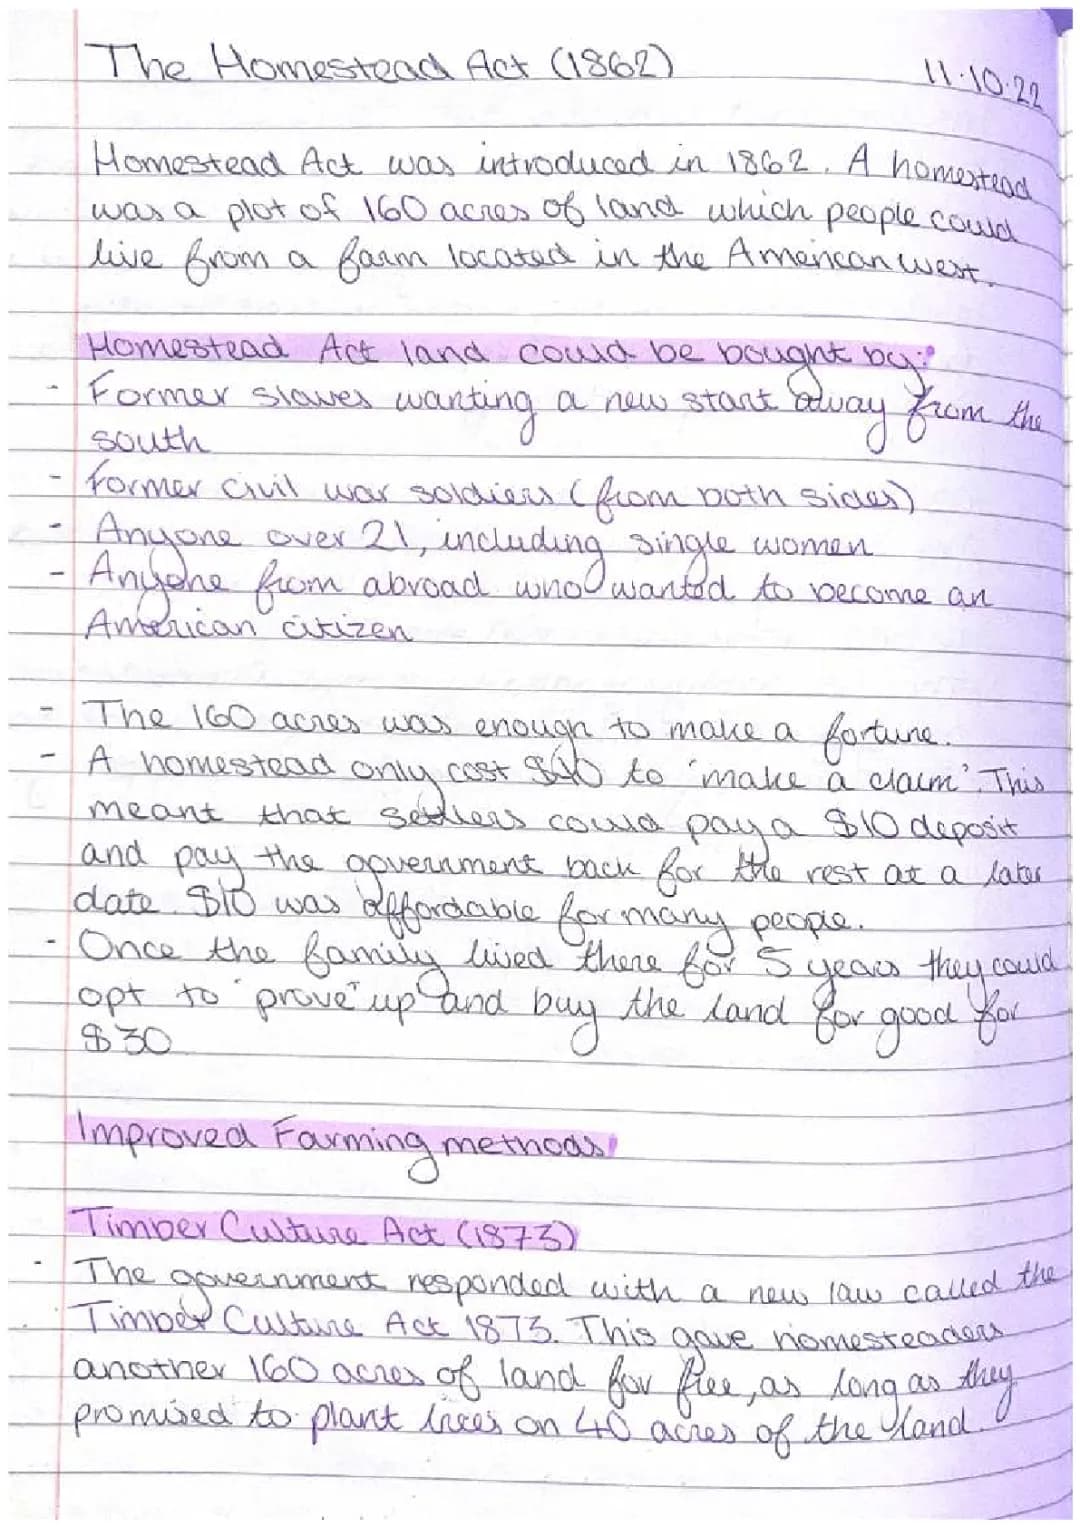 The Homestead Act (1862)
11.10.22
Homestead Act was introduced in 1862. A homestead
was a plot of 160 acres of land which people could
live from a farm located in the American west.
Homestead Act land could be bought by:
- Former slaves wanting a new start away from the
south
- Former civil war soldiers (from both sides)
- Anyone over 21, including single women
- Anyone from abroad who wanted to become an
American citizen
- The 160 acres was enough to make a fortune.
- A homestead only cost $40 to 'make a claim'. This
meant that settlers could pay a $10 deposit
and pay the government back for the rest at a later
date. $10 was affordable for many people.
- Once the family lived there for 5 years they could
opt to "prove" up and buy the land for good for
$30
Improved Farming methods
Timber Culture Act (1873)
- The government responded with a new law called the
Timber Culture Act 1873. This gave homesteaders
another 160 acres of land for free, as long as they
promised to plant trees on 40 acres of the land.